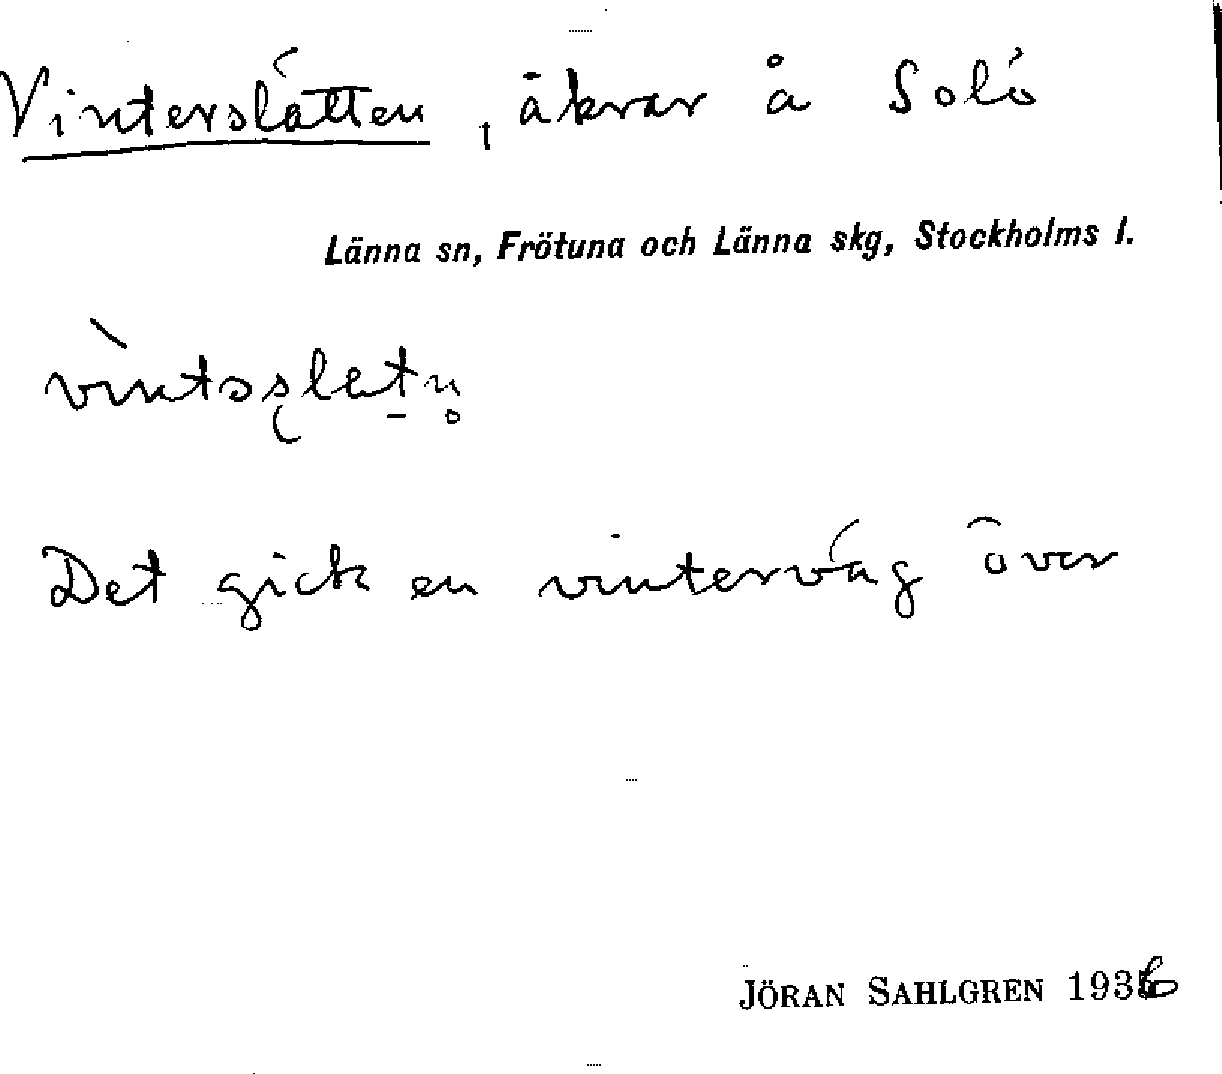 Vinterslätten, åkrar å Solö
Länna sn, Frötuna och Länna skg, Stockholms l.
Det gick en vinterväg över
JÖRAN SAHLGREN 1936